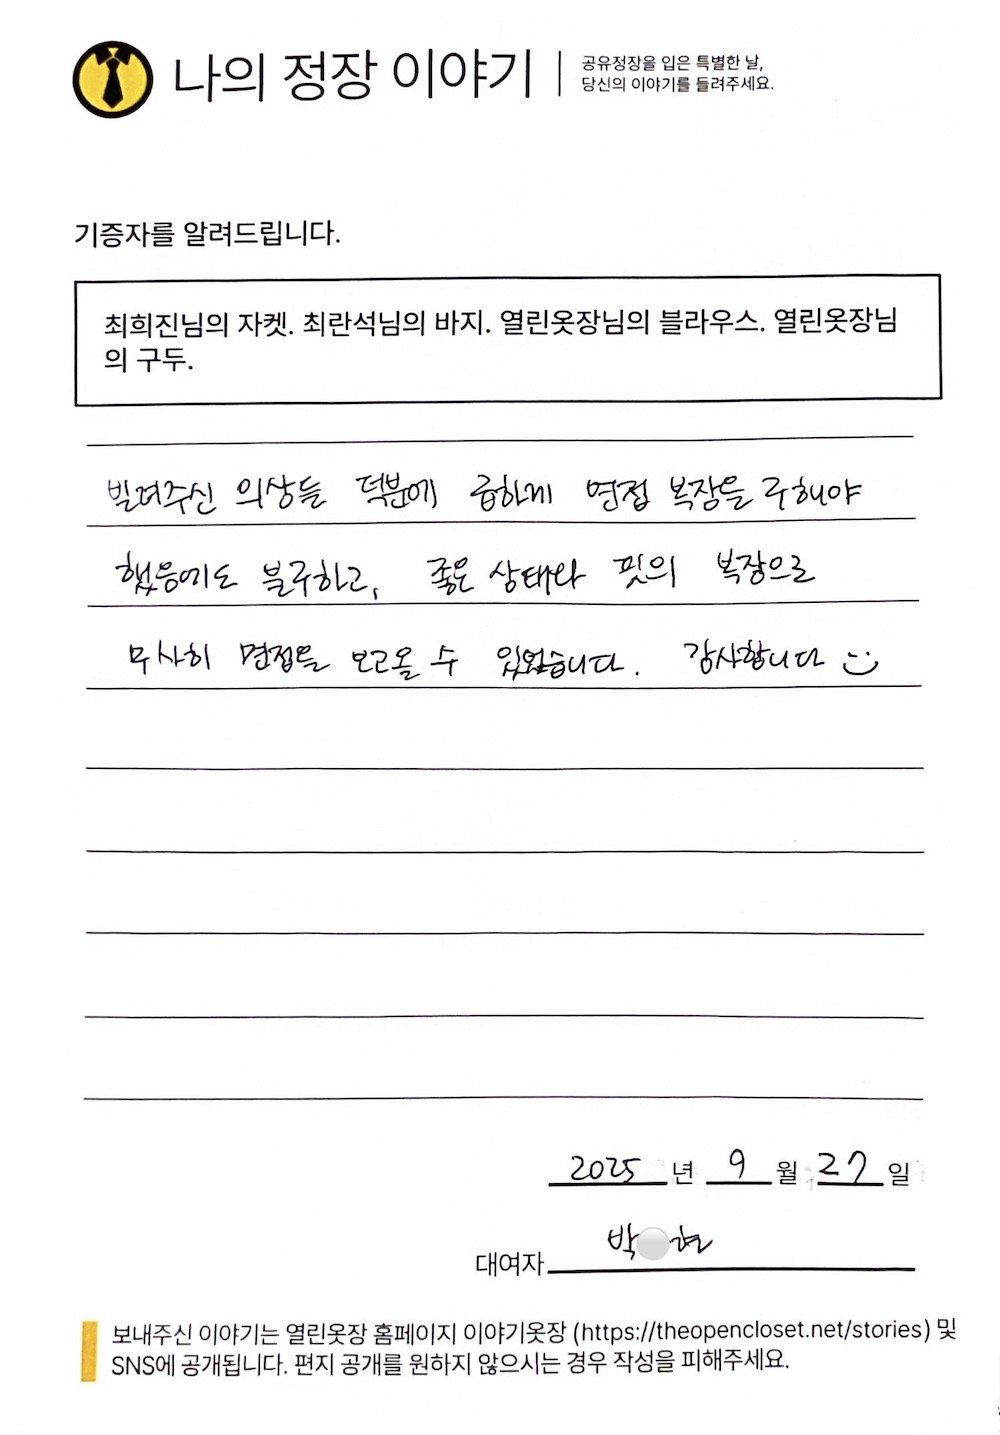 나의 정장 이야기
공유정장을 입은 특별한 날,
당신의 이야기를 들려주세요.
기증자를 알려드립니다.
최희진님의 자켓. 최란석님의 바지. 열린옷장님의 블라우스. 열린옷장님
의 구두.
빌려주신 의상들 덕분에 급하게 면접 복장을 구해야
했음에도 불구하고, 좋은 상태와 핏의 복장으로
무사히 면접을 보고올 수 있었습니다. 감사합니다
2025 년 9 월 27 일
대여자 박 현
보내주신 이야기는 열린옷장 홈페이지 이야기옷장 (https://theopencloset.net/stories) 및
SNS에 공개됩니다. 편지 공개를 원하지 않으시는 경우 작성을 피해주세요.